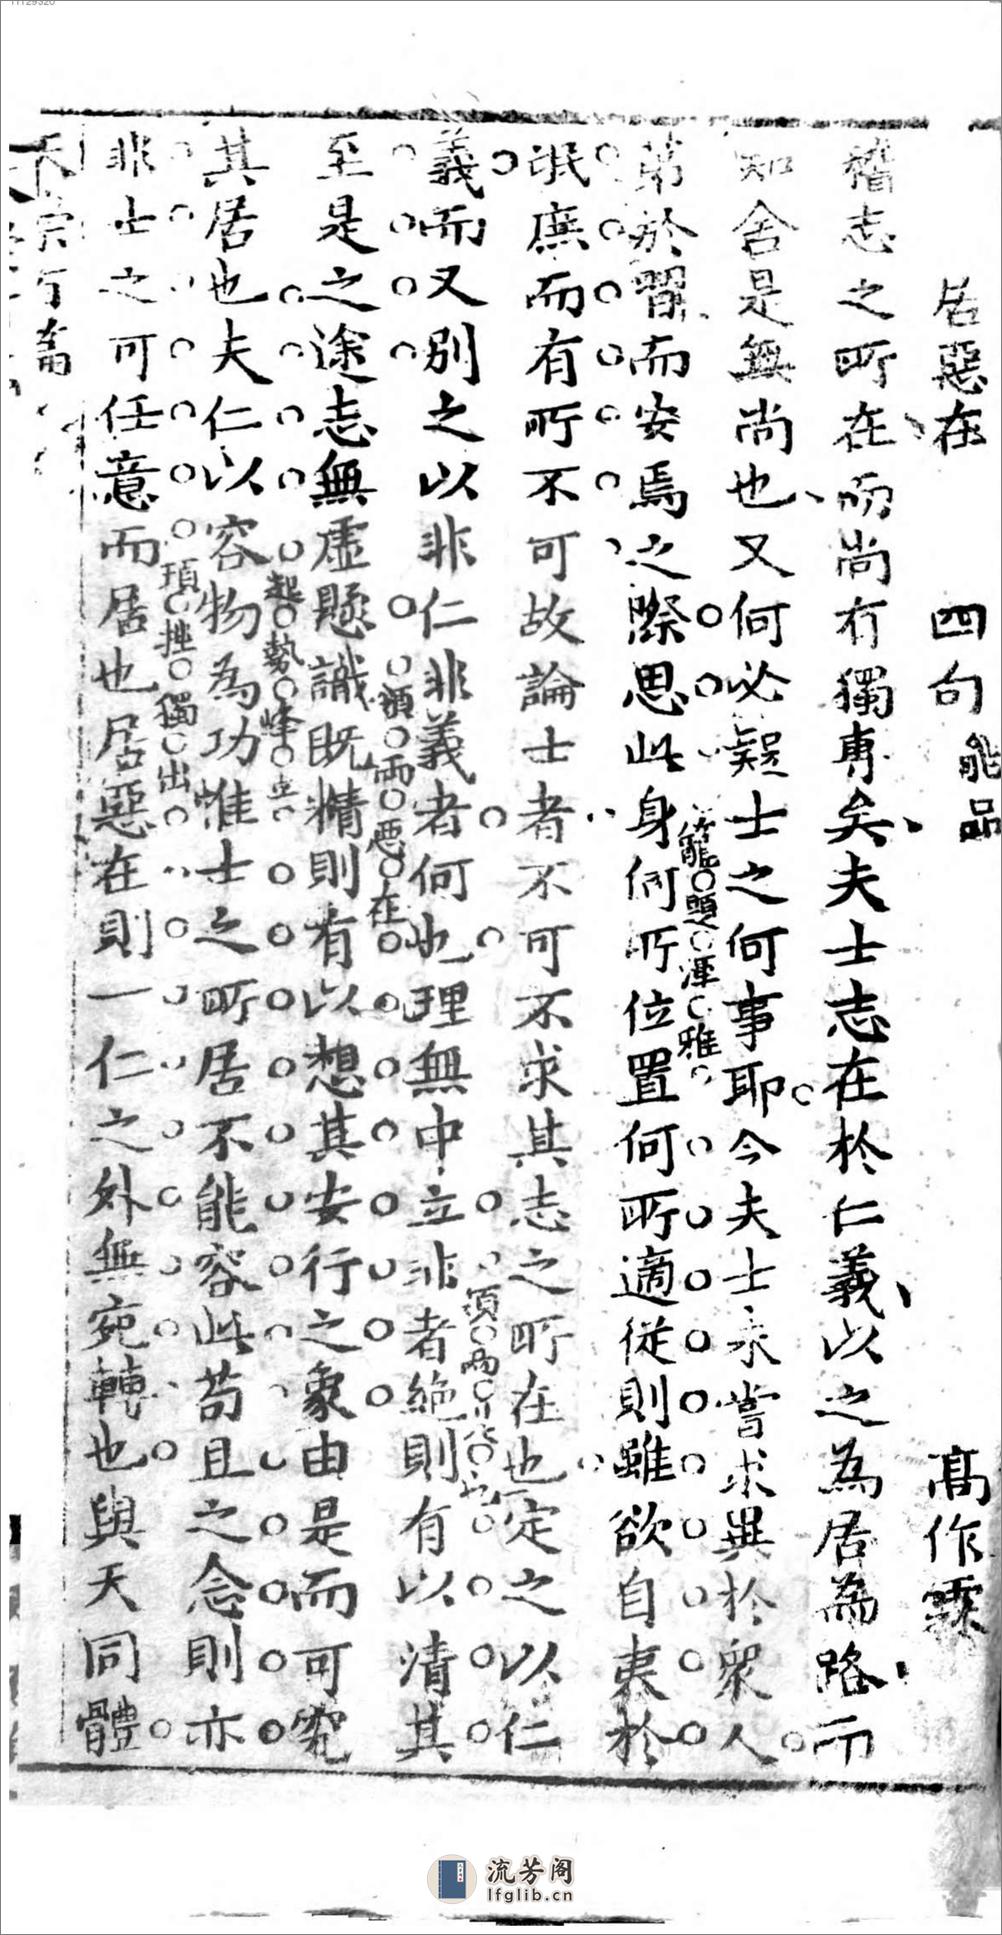 居惡在 四句 能品 高作霖
稽志之所在而尚有獨專矣夫士志在於仁義以之為居為路而
知舍是無尚也又何必疑士之何事耶今夫士未嘗求異於衆人
籠題渾雅
第於習而安焉之際思此身何所位置何所適從則雖欲自夷於
氓庶而有所不可故論士者不可不求其志之所在也定之以仁
義而又別之以非仁非義者何也理無中立非者絕則有以清其
至是之途志無虛懸識既精則有以想其安行之象由是而可究
其居也夫仁以容物為功惟士之所居不能容此苟且之念則亦
起勢峰立
非士之可任意而居也居惡在則一仁之外無宛轉也與天同體
頓挫獨出
流芳阁
lfglib.cn